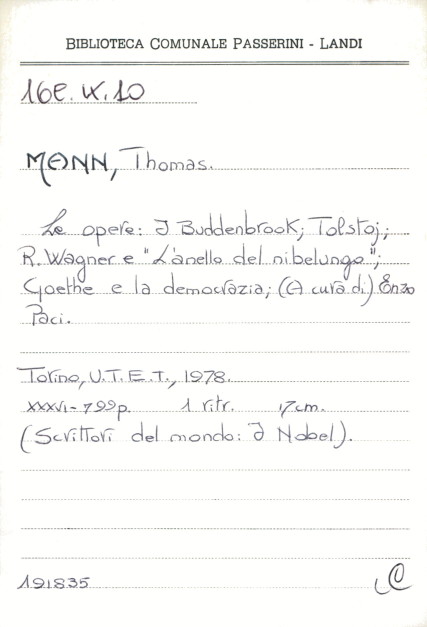 BIBLIOTECA COMUNALE PASSERINI - LANDI
16E.IX.10
MANN, Thomas.
Le opere: I Buddenbrook; Tolstoj;
R. Wagner e "L'anello del nibelungo";
Goethe e la democrazia; (A cura di) Enzo
Paci.
Torino, U.T.E.T., 1978.
XXXVI-799p. 1 ritr. 17cm.
(Scrittori del mondo: I Nobel).
191835